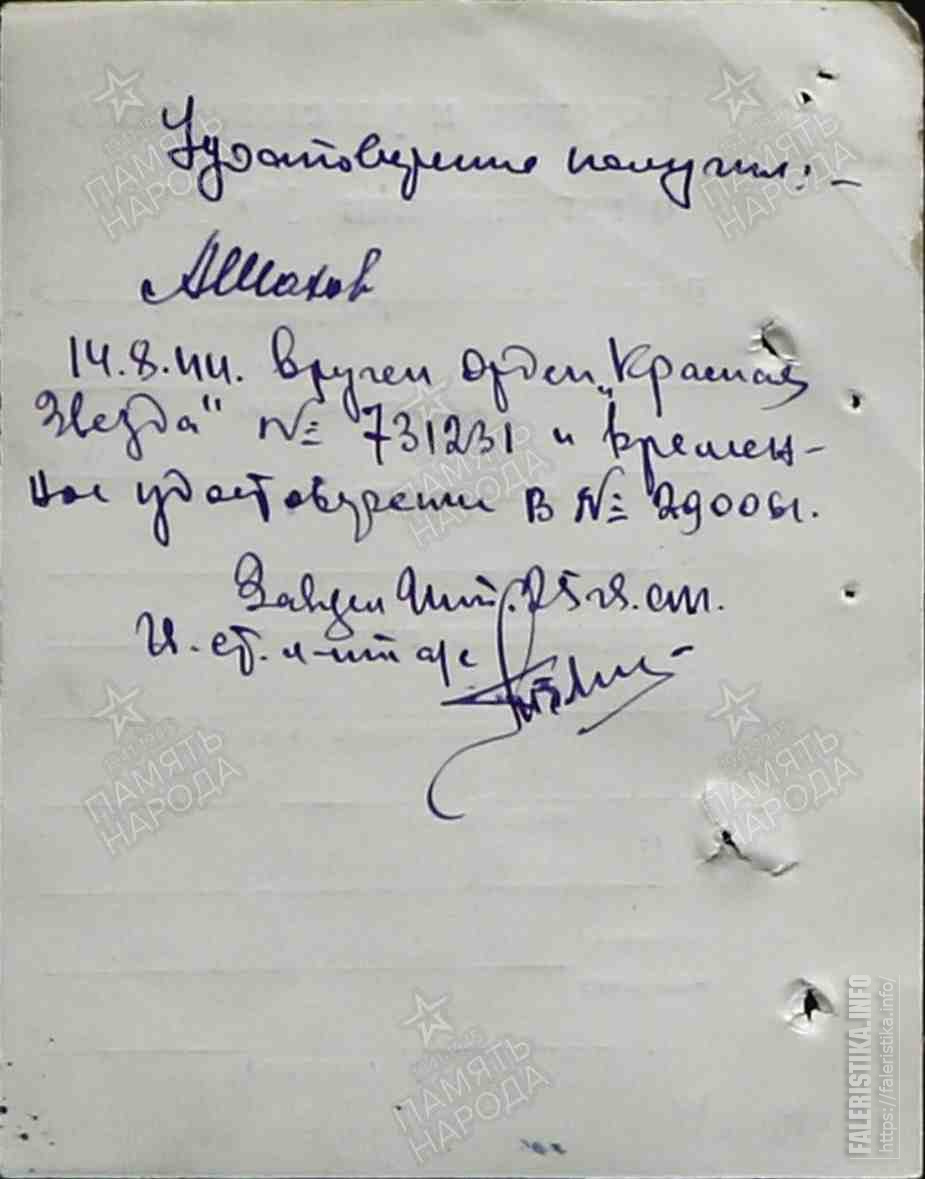 Удостоверение получил: –
АШахов
14.8.44. Вручен орден „Красная
Звезда" № 731231 и времен-
ное удостоверение В № 290061.
Завдел
И. ст. л-нт а/с
ПАМЯТЬ НАРОДА
ПАМЯТЬ НАРОДА
ПАМЯТЬ НАРОДА
ПАМЯТЬ НАРОДА
ПАМЯТЬ НАРОДА
ПАМЯТЬ НАРОДА
FALERISTIKA.INFO
https://faleristika.info/